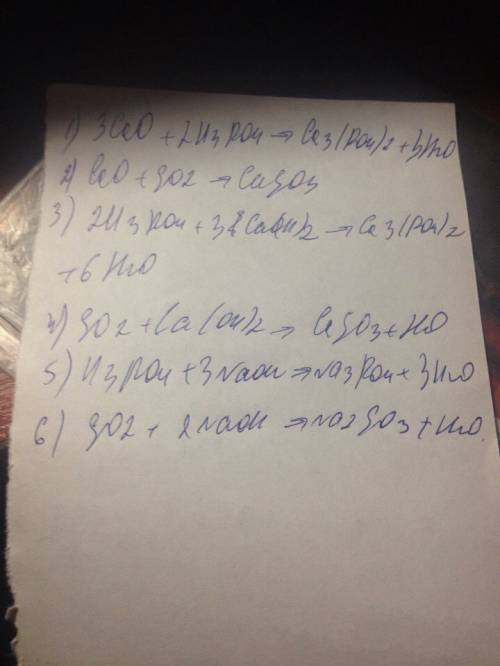 1) 3CaO + 2H3PO4 → Ca3(PO4)2 + 3H2O
2) CaO + SO2 → CaSO3
3) 2H3PO4 + 3Ca(OH)2 → Ca3(PO4)2
+ 6H2O
4) SO2 + Ca(OH)2 → CaSO3 + H2O
5) H3PO4 + 3NaOH → Na3PO4 + 3H2O
6) SO2 + 2NaOH → Na2SO3 + H2O.